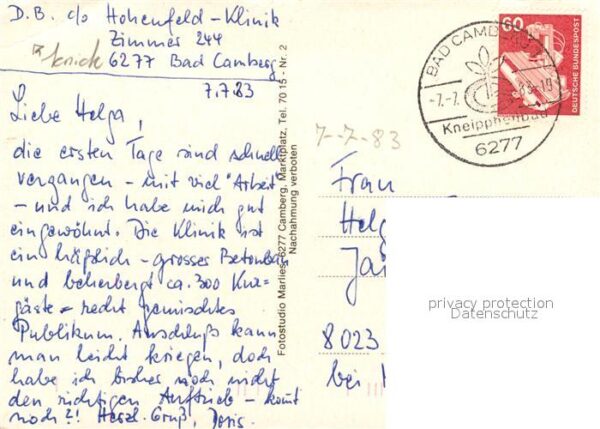 D.B. c/o Hohenfeld-Klinik
Zimmer 244
knick
6277 Bad Camberg
7.7.83
Liebe Helga,
die ersten Tage sind schnell
vergangen - mit viel "Arbeit"
- und ich habe mich gut
eingewöhnt. Die Klinik ist
ein häßlich - grosses Betonbau
und beherbergt ca. 300 Kur=
gäste - recht gemischtes
Publikum. Anschluß kann
man leicht kriegen, doch
habe ich bisher noch nicht
den richtigen Auftrieb - kommt
noch?! Herzl. Gruß, Doris.
Fotostudio Marlies, 6277 Camberg, Marktplatz, Tel. 70 15 - Nr. 2
Nachahmung verboten
60
DEUTSCHE BUNDESPOST
BAD CAMBERG
-7.-7.83-19
Kneippheilbad
6277
7-7-83
Frau
Helg
8023
bei
privacy protection
Datenschutz